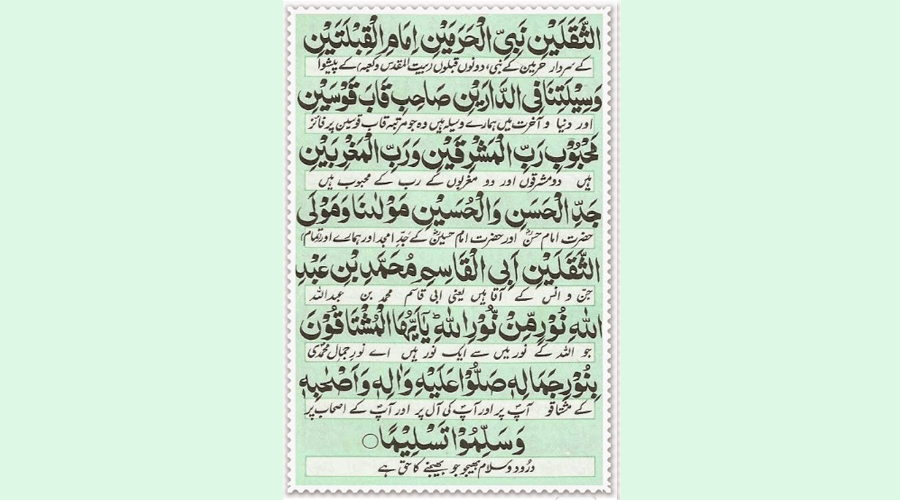 الثَّقَلَيْنِ نَبِيِّ الْحَرَمَيْنِ اِمَامِ الْقِبْلَتَيْنِ
کے سردار حرمین کے نبی، دونوں قبلوں (بیت المقدس و کعبہ) کے پیشوا
وَسِيْلَتِنَا فِي الدَّارَيْنِ صَاحِبِ قَابَ قَوْسَيْنِ
اور دنیا و آخرت میں ہمارے وسیلہ ہیں وہ جو مرتبہ قاب قوسین پر فائز
مَحْبُوْبِ رَبِّ الْمَشْرِقَيْنِ وَرَبِّ الْمَغْرِبَيْنِ
ہیں دو مشرقوں اور دو مغربوں کے رب کے محبوب ہیں
جَدِّ الْحَسَنِ وَالْحُسَيْنِ مَوْلٰىنَا وَمَوْلَى
حضرت امام حسنؓ اور حضرت امام حسینؓ کے جدِّ امجد اور ہمارے اور (تمام)
الثَّقَلَيْنِ اَبِى الْقَاسِمِ مُحَمَّدِ بْنِ عَبْدِ
جنّ و انس کے آقا ہیں یعنی ابی قاسم محمد بن عبداللہ
اللهِ نُوْرٍ مِّنْ نُّوْرِ اللهِ ؕ يٰٓاَيُّهَا الْمُشْتَاقُوْنَ
جو اللہ کے نور میں سے ایک نور ہیں اے نورِ جمالِ محمدیؐ
بِنُوْرِ جَمَالِهٖ صَلُّوْا عَلَيْهِ وَاٰلِهٖ وَاَصْحٰبِهٖ
کے مشتاقو آپؐ پر اور آپؐ کی آل پر اور آپؐ کے اصحاب پر
وَسَلِّمُوْا تَسْلِيْمًا ○
درود و سلام بھیجو جو بھیجنے کا حق ہے